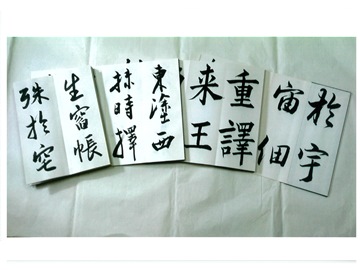 於宇
宙
重譯
来王
東塗西
抹時擇
生窗帳
殊於